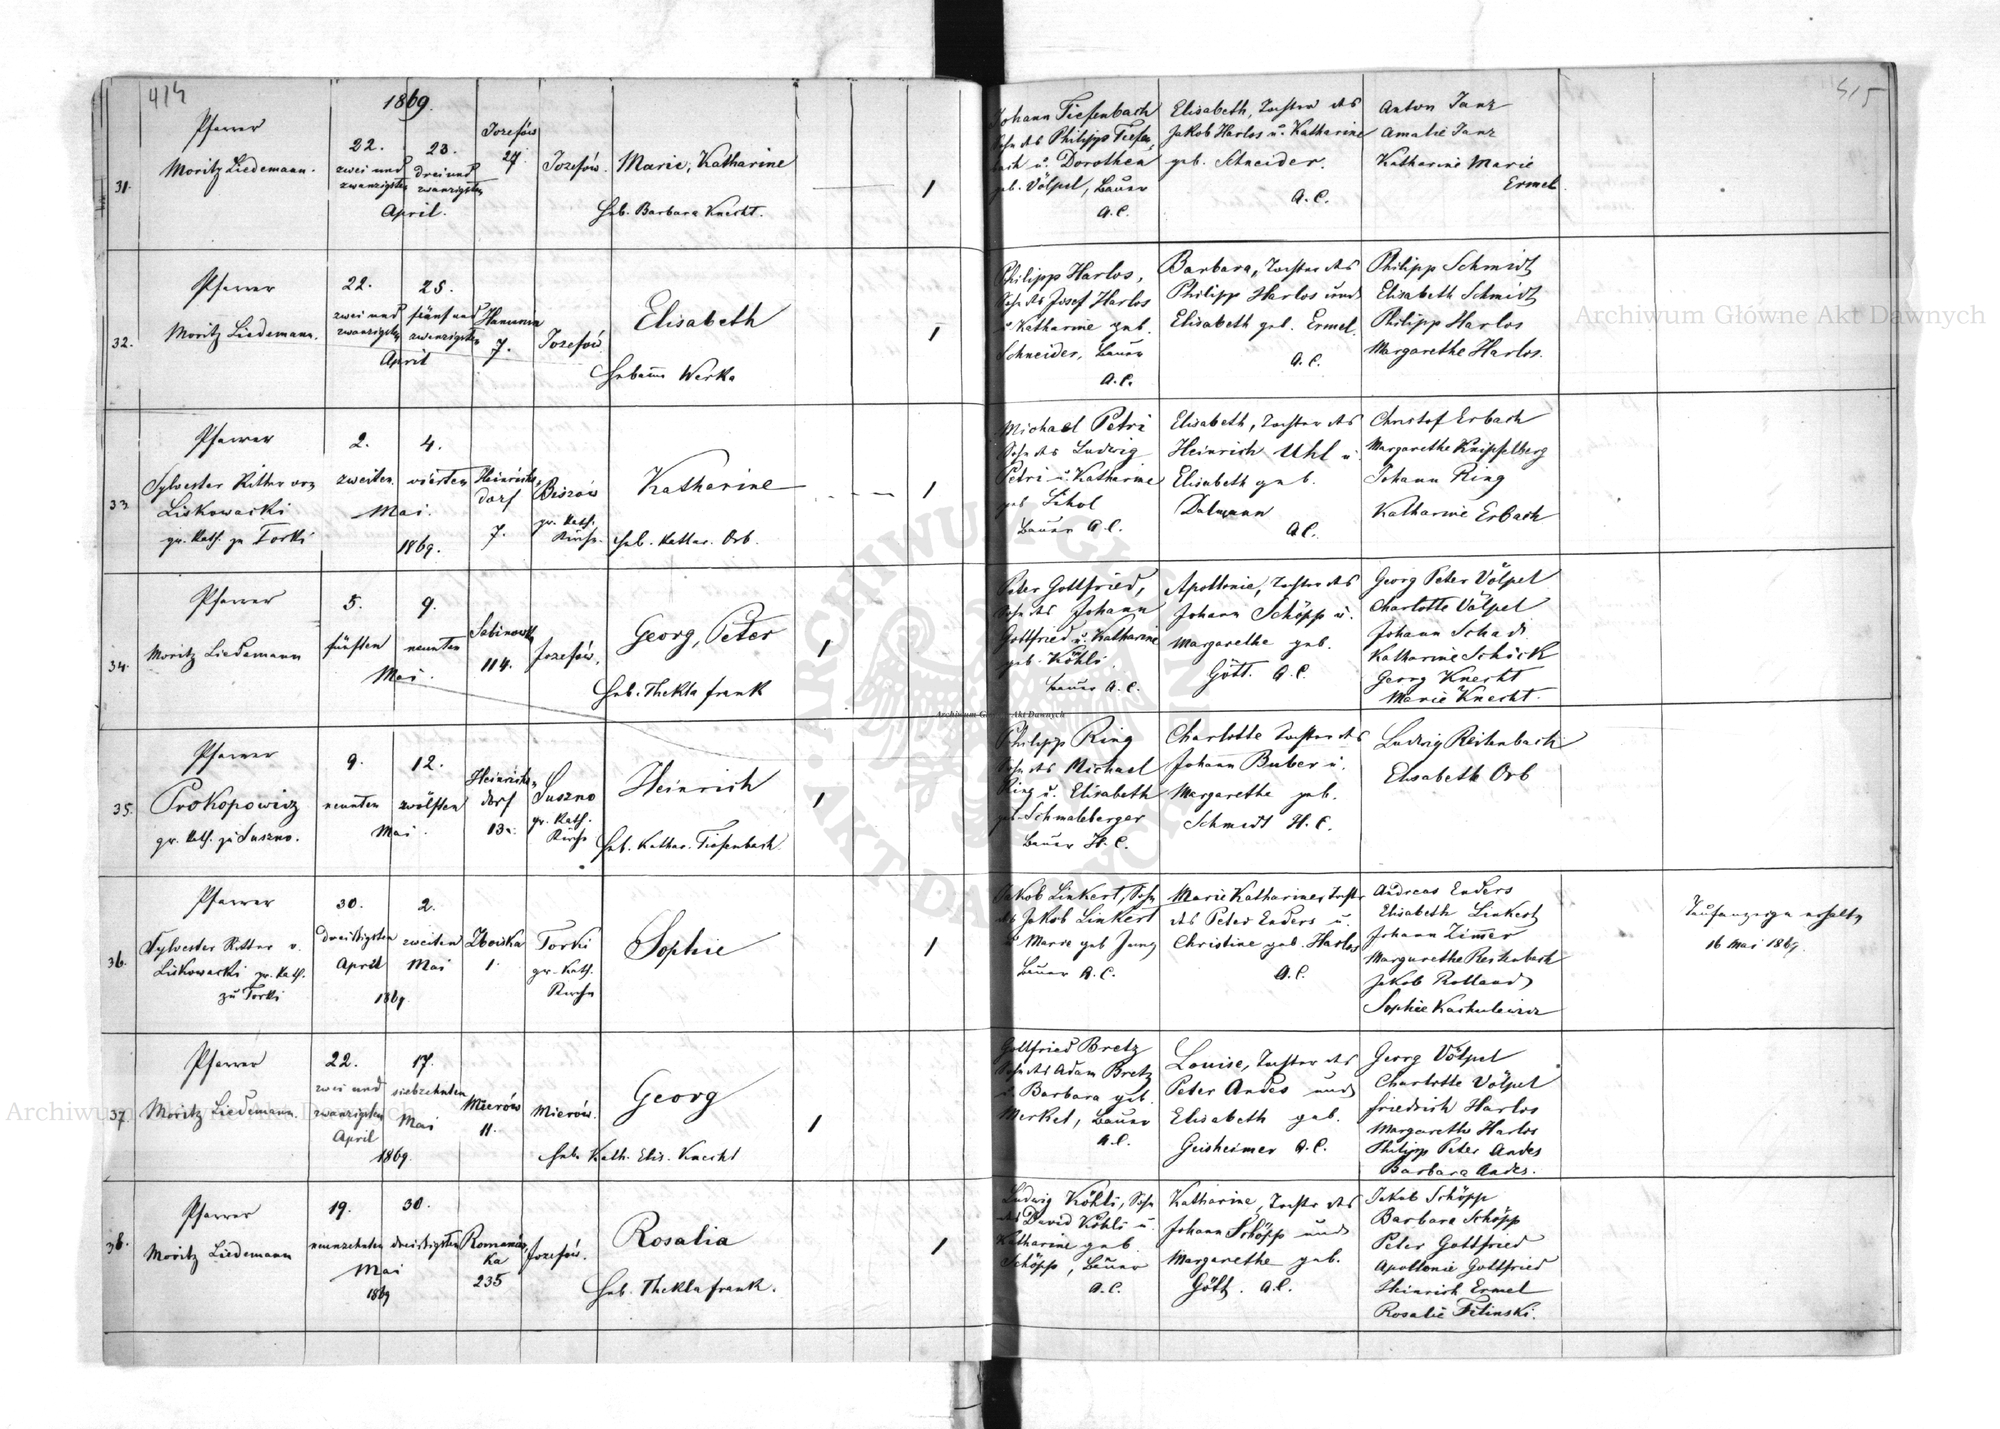 414
515
1869.
31.
Pfarrer
Moritz Liedemann.
22.
zwei und
zwanzigsten
23.
drei und
zwanzigsten
April.
Jozefów
27.
Jozefów.
Marie, Katharine
Heb. Barbara Knecht.
1
Johann Tiefenbach
Sohn des Philipp Tiefen-
bach u. Dorothea
geb. Völpel, Bauer
A.C.
Elisabeth, Tochter des
Jakob Harlos u. Katharine
geb. Schneider.
A.C.
Anton Janz
Amalie Janz
Katharine Marie
Ermel.
32.
Pfarrer
Moritz Liedemann.
22.
zwei und
zwanzigsten
25.
fünf und
zwanzigsten
April
Hanunin
7.
Jozefów.
Elisabeth
Hebamme Werka
1
Philipp Harlos,
Sohn des Josef Harlos
u. Katharine geb.
Schneider, Bauer
A.C.
Barbara, Tochter des
Philipp Harlos und
Elisabeth geb. Ermel.
A.C.
Philipp Schmidt
Elisabeth Schmidt
Philipp Harlos
Margarethe Harlos.
33.
Pfarrer
Sylvester Ritter von
Liskowacki
gr. Kath. zu Torki
2.
zweiten
4.
vierten
Mai.
1869.
Heinrichs-
dorf
7.
Beszów
gr. Kath.
Kirche.
Katharine
Heb. Kathar. Orb.
1
Michael Petri
Sohn des Ludwig
Petri u. Katharine
geb.
Bauer A.C.
Elisabeth, Tochter des
Heinrich Uhl u.
Elisabeth geb.
Dalmann
A.C.
Christof Erbach
Margarethe Knipfelberg
Johann Ring
Katharine Erbach
34.
Pfarrer
Moritz Liedemann
5.
fünften
9.
neunten
Mai.
Sabinowka
114.
Jozefów.
Georg, Peter
Heb. Thekla Frank
1
Peter Gottfried,
Sohn des Johann
Gottfried u. Katharine
geb. Köhli.
Bauer A.C.
Apollonia, Tochter des
Johann Schöpp u.
Margarethe geb.
Gött. A.C.
Georg Peter Völpel
Charlotte Völpel
Johann Schadi
Katharine Schick
Georg Knecht
Marie Knecht.
35.
Pfarrer
Prokopowicz
gr. Kath. zu Suszno.
9.
neunten
12.
zwölften
Mai.
Heinrichs-
dorf
13.
Suszno
gr. Kath.
Kirche
Heinrich
Heb. Kathar. Tiefenbach
1
Philipp Ring
Sohn des Michael
Ring u. Elisabeth
geb. Schmaleberger
Bauer H.C.
Charlotte Tochter des
Johann Buber u.
Margarethe geb.
Schmidt H.C.
Ludwig Reitenbach
Elisabeth Orb
36.
Pfarrer
Sylvester Ritter v.
Liskowacki gr. Kath.
zu Torki
30.
dreißigsten
April
2.
zweiten
Mai
1869
Zboiska
1.
Torki
gr. Kath.
Kirche
Sophie
1
Jakob Linkert, Sohn
des Jakob Linkert
u. Marie geb Jung
Bauer A.C.
Marie Katharine, Tochter
des Peter Enders u
Christine geb. Harlos
A.C.
Andreas Enders
Elisabeth Linkert
Johann Zimer
Margarethe Reitenbach
Jakob Rolland
Sophie Kaskulewicz
Taufanzeige erhalten
16 Mai 1869.
37.
Pfarrer
Moritz Liedemann
22.
zwei und
zwanzigsten
April
17.
siebzehnten
Mai
1869.
Mierów
11.
Mierów.
Georg
Heb. Kath. Elis. Knecht
1
Gottfried Bretz
Sohn des Adam Bretz
u. Barbara geb.
Merket, Bauer
A.C.
Louise, Tochter des
Peter Andes und
Elisabeth geb.
Geisheimer A.C.
Georg Völpel
Charlotte Völpel
Friedrich Harlos
Margarethe Harlos
Philipp Peter Andes
Barbara Andes.
38.
Pfarrer
Moritz Liedemann
19.
neunzehnten
30.
dreißigsten
Mai
1869
Romanów-
ka
235
Jozefów.
Rosalia
Heb. Thekla Frank.
1
Ludwig Köhli, Sohn
des David Köhli u.
Katharine geb.
Schöpp, Bauer
A.C.
Katharine, Tochter des
Johann Schöpp und
Margarethe geb.
Gött. A.C.
Jakob Schöpp
Barbara Schöpp
Peter Gottfried
Apollonie Gottfried
Heinrich Ermel
Rosalie Filinski.
Archiwum Główne Akt Dawnych
Archiwum Główne Akt Dawnych
Archiwum Główne Akt Dawnych
ARCHIWUM GŁÓWNE AKT DAWNYCH